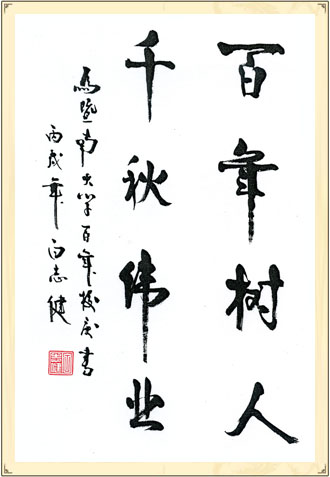 百年树人
千秋伟业
为暨南大学百年校庆书
丙戌年白志健